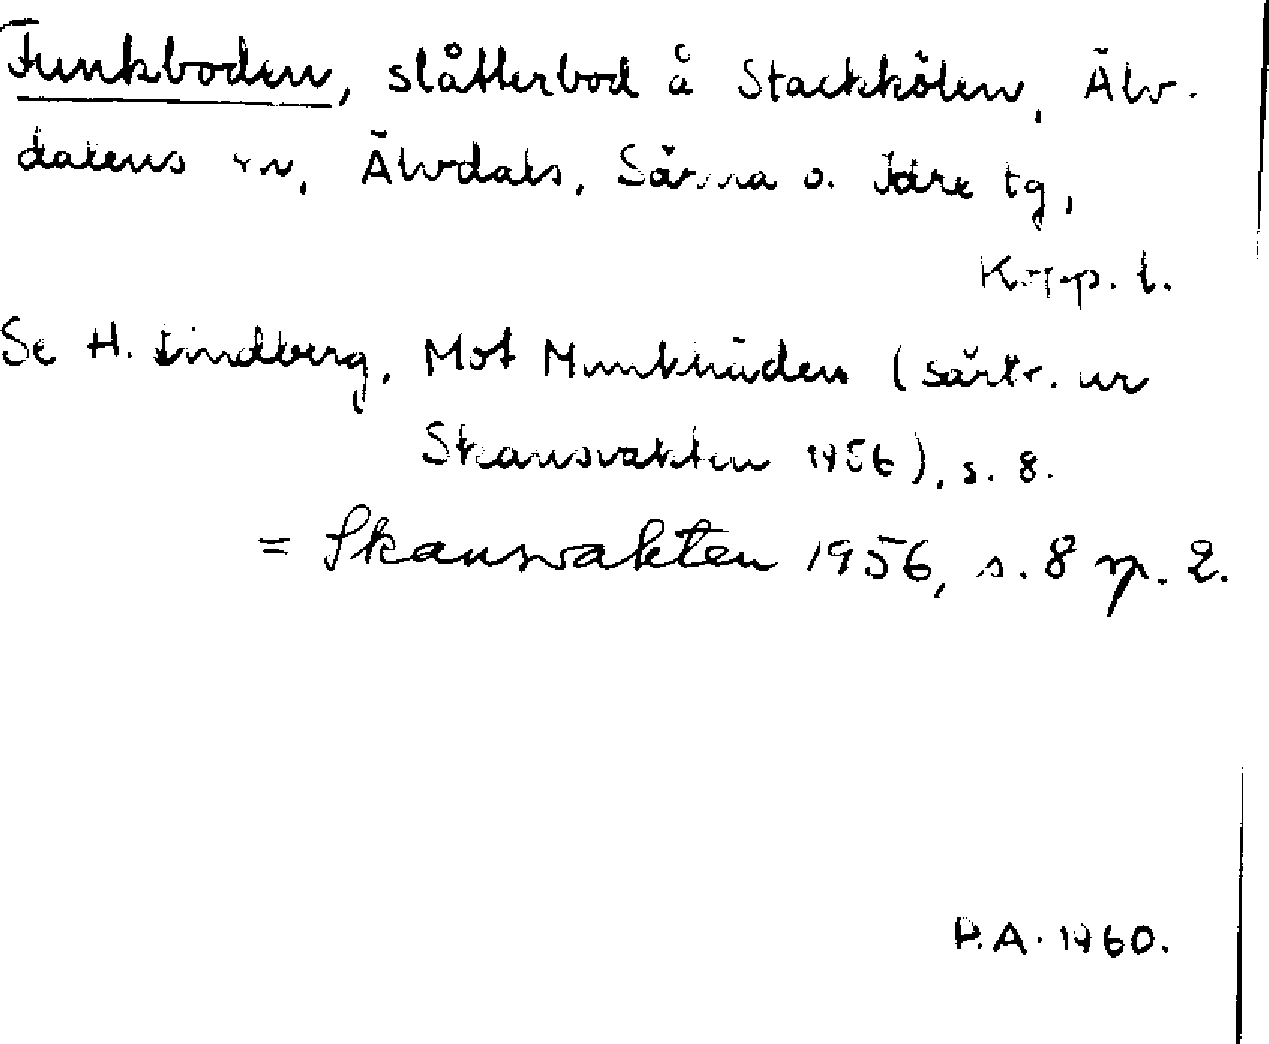 Funkboden, slåtterbod å Stackkölen, Älv-
dalens sn, Älvdals, Särna o. Idre tg,
Kopp. l.
Se H. Lindberg, Mot Munknäden (särtr. ur
Skansvakten 1956), s. 8.
= Skansvakten 1956, s. 8 sp. 2.
P.A. 1960.